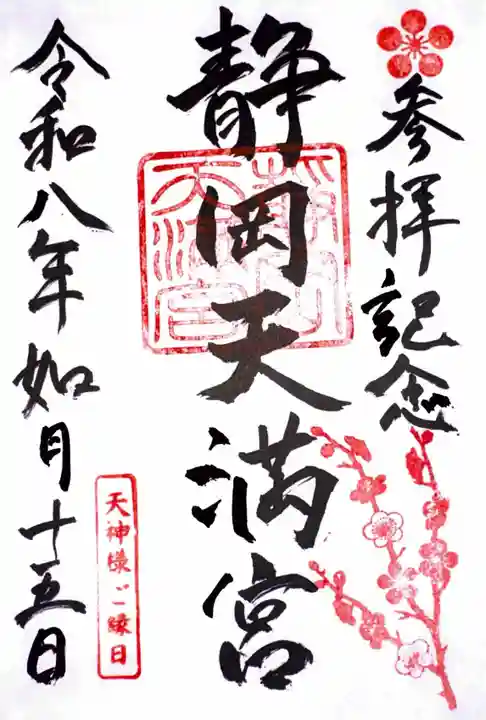 参拝記念
静岡天満宮
静岡天満宮
令和八年如月十五日
天神様ご縁日